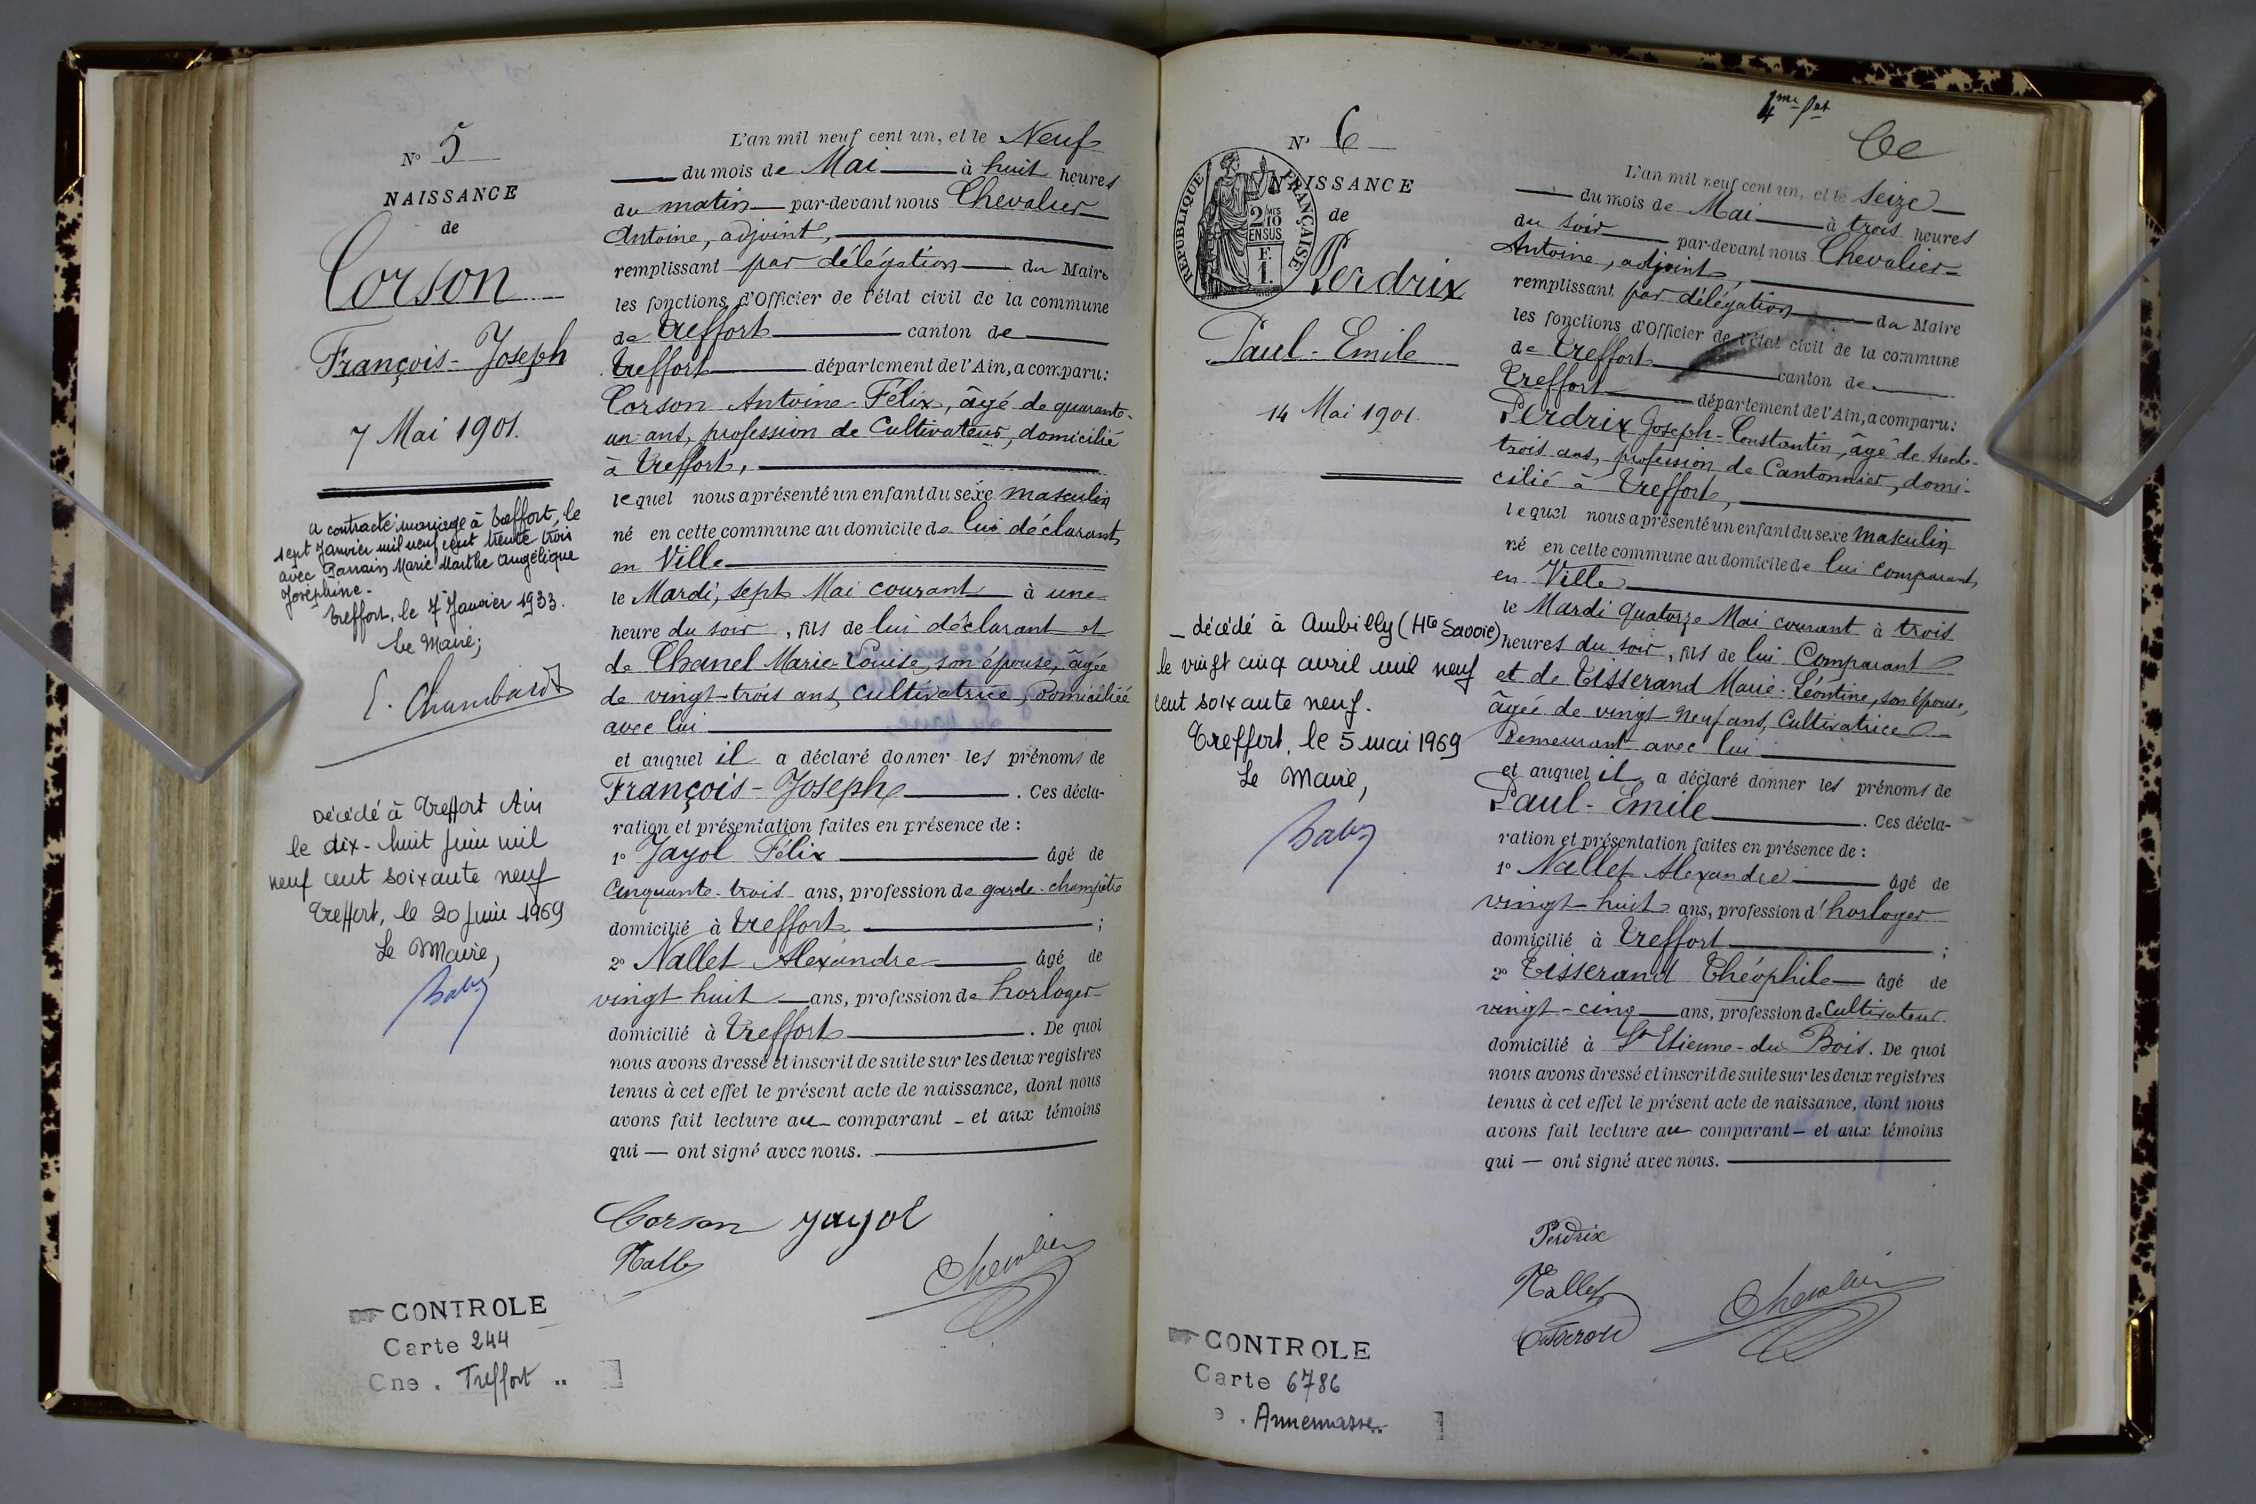 N° 5
NAISSANCE
de
Corson
François-Joseph
7 Mai 1901.
a contracté mariage à Treffort, le
sept Janvier mil neuf cent trente trois
avec Parrain Marie Marthe Angélique
Joséphine.
Treffort, le 7 Janvier 1933.
Le Maire;
E. Chambard
Décédé à Treffort Ain
le dix-huit juin mil
neuf cent soixante neuf
Treffort, le 20 juin 1969
Le Maire,
CONTROLE
Carte 244
Cne . Treffort ..
L'an mil neuf cent un, et le Neuf
du mois de Mai à huit heures
du matin par-devant nous Chevalier
Antoine, adjoint,
remplissant par délégation du Maire
les fonctions d'Officier de l'état civil de la commune
de Treffort canton de
Treffort département de l'Ain, a comparu:
Corson Antoine-Félix, âgé de quarante-
un ans, profession de Cultivateur, domicilié
à Treffort,
lequel nous a présenté un enfant du sexe masculin
né en cette commune au domicile de lui déclarant,
en Ville
le Mardi, sept Mai courant à une
heure du soir, fils de lui déclarant et
de Chanel Marie-Louise, son épouse, âgée
de vingt-trois ans, cultivatrice, domiciliée
avec lui
et auquel il a déclaré donner les prénoms de
François-Joseph. Ces décla-
ration et présentation faites en présence de :
1° Jayol Félix âgé de
Cinquante-trois ans, profession de garde-champêtre
domicilié à Treffort ;
2° Nallet Alexandre âgé de
vingt huit ans, profession de horloger
domicilié à Treffort. De quoi
nous avons dressé et inscrit de suite sur les deux registres
tenus à cet effet le présent acte de naissance, dont nous
avons fait lecture au comparant et aux témoins
qui — ont signé avec nous.
Corson Jayol
Nallet Chevalier
N° 6
REPUBLIQUE FRANÇAISE
2 MES
10
EN SUS
F.
1.
NAISSANCE
de
Perdrix
Paul-Emile
14 Mai 1901.
décédé à Ambilly (Hte Savoie)
le vingt cinq avril mil neuf
cent soixante neuf.
Treffort, le 5 mai 1969
Le Maire,
CONTROLE
Carte 6786
e . Annemasse..
L'an mil neuf cent un, et le seize
du mois de Mai à trois heures
du soir par-devant nous Chevalier
Antoine, adjoint,
remplissant par délégation du Maire
les fonctions d'Officier de l'état civil de la commune
de Treffort canton de
Treffort département de l'Ain, a comparu:
Perdrix Joseph-Constantin, âgé de trente-
trois ans, profession de Cantonnier, domi-
cilié à Treffort,
lequel nous a présenté un enfant du sexe masculin
né en cette commune au domicile de lui comparant,
en Ville
le Mardi quatorze Mai courant à trois
heures du soir, fils de lui Comparant
et de Tisserand Marie-Léontine, son épouse,
âgée de vingt-neuf ans, Cultivatrice
Demeurant avec lui
et auquel il a déclaré donner les prénoms de
Paul-Emile. Ces décla-
ration et présentation faites en présence de :
1° Nallet Alexandre âgé de
vingt-huit ans, profession d'horloger
domicilié à Treffort ;
2° Tisserand Théophile âgé de
vingt-cinq ans, profession de Cultivateur
domicilié à St Etienne-du Bois. De quoi
nous avons dressé et inscrit de suite sur les deux registres
tenus à cet effet le présent acte de naissance, dont nous
avons fait lecture au comparant et aux témoins
qui — ont signé avec nous.
Perdrix
Nallet Chevalier